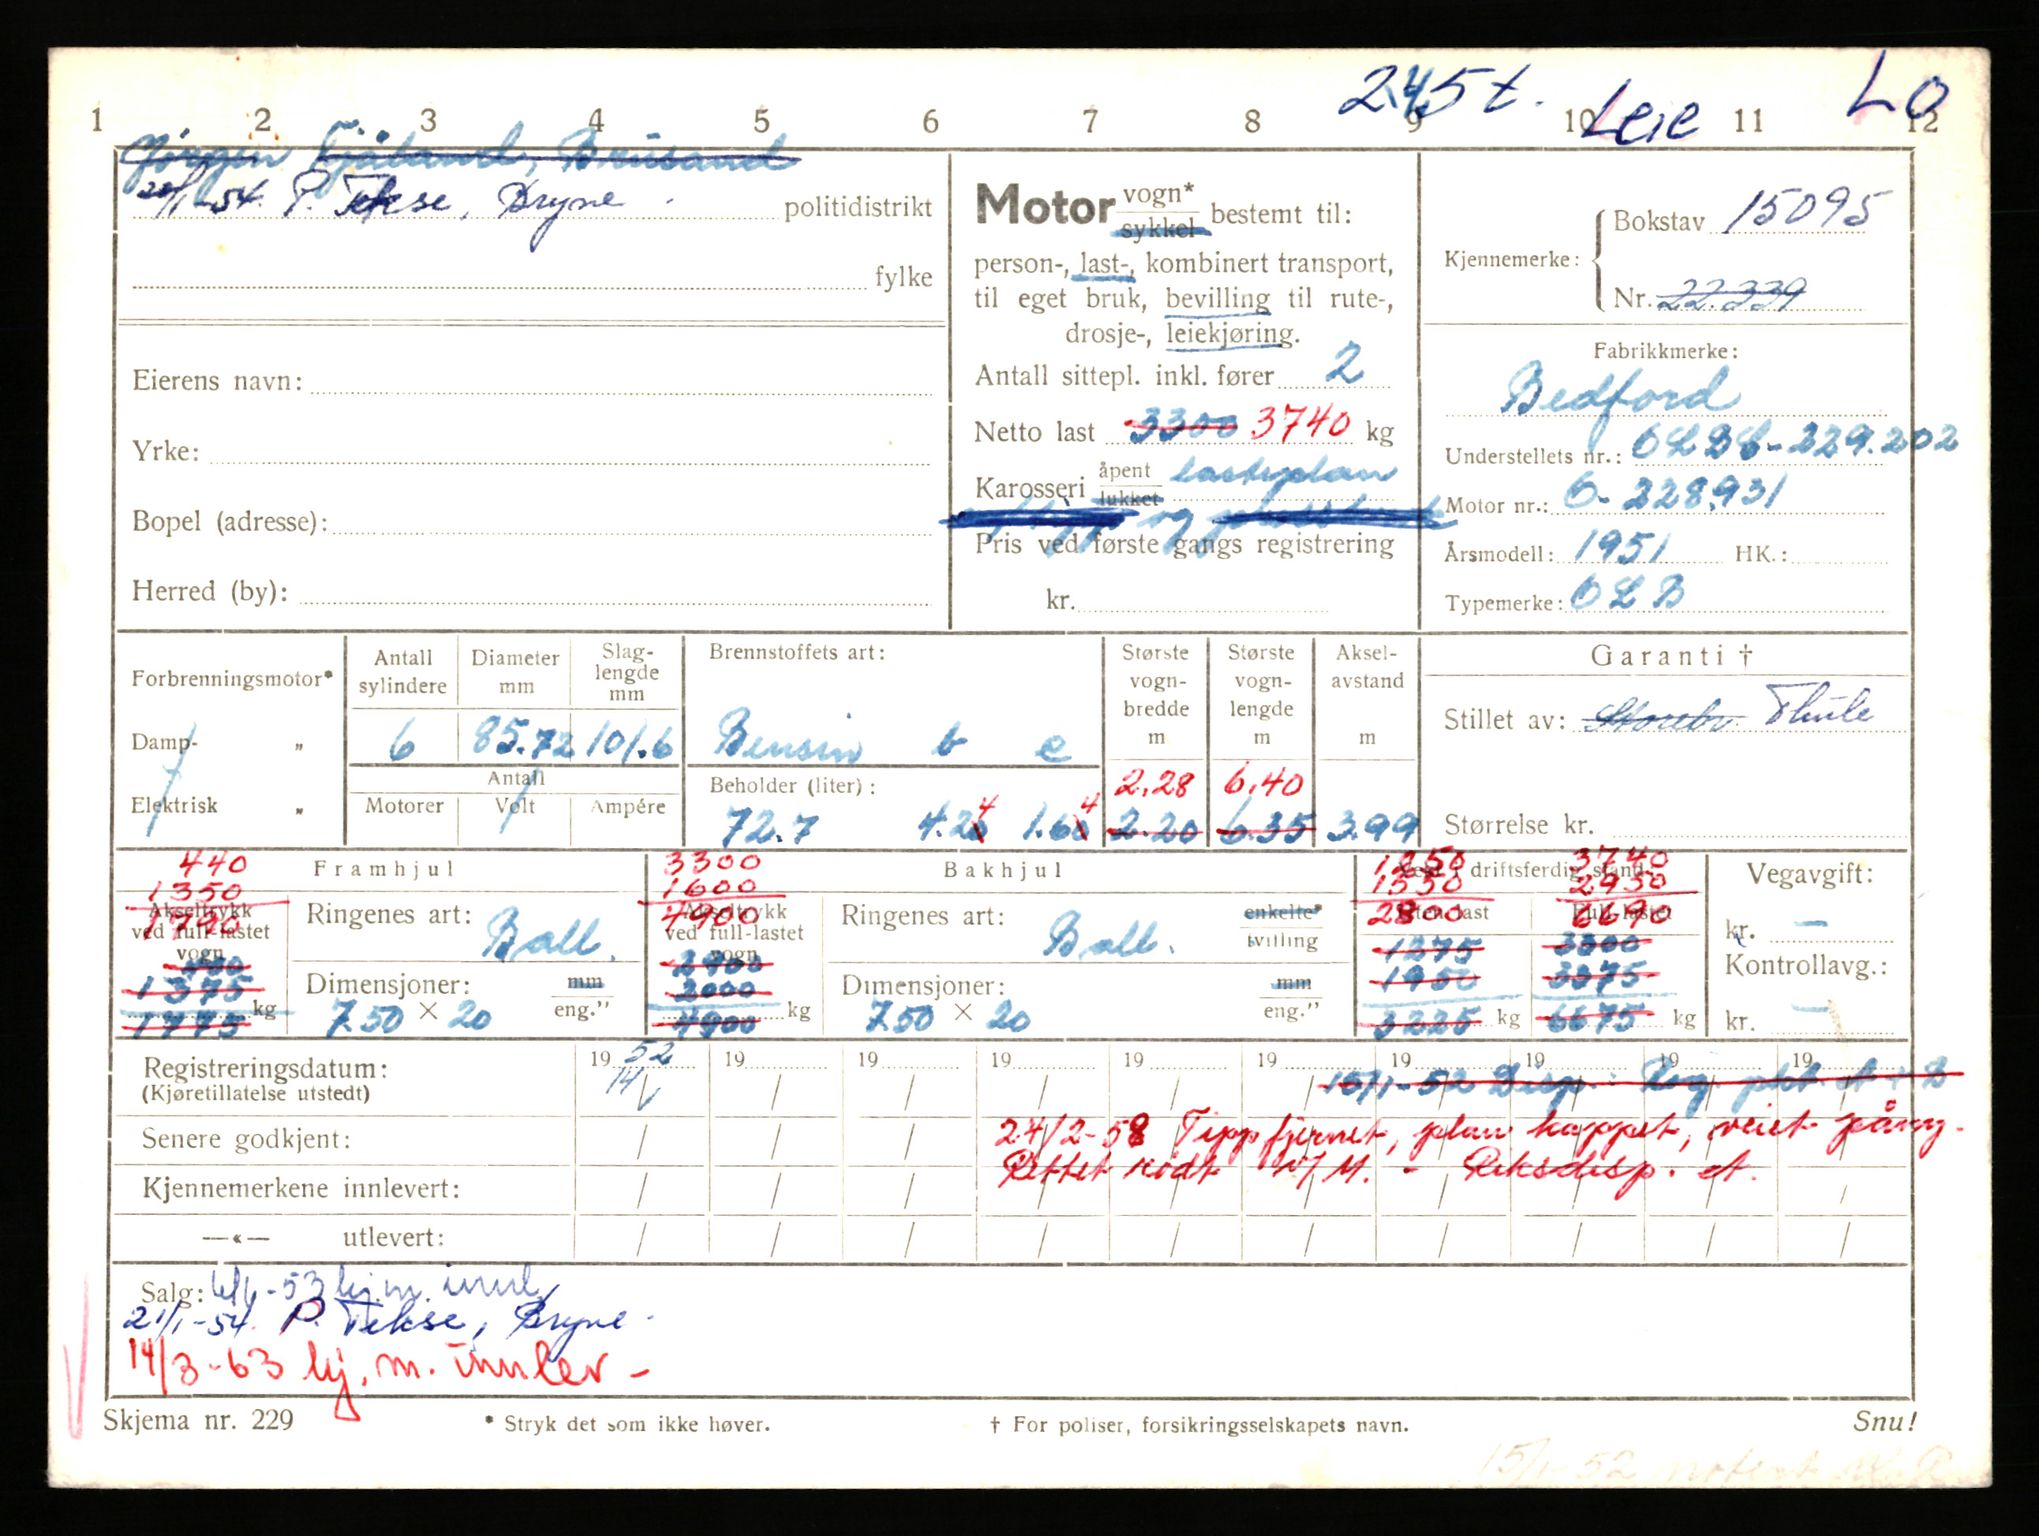 2.45 t. Leie Lo
1 2 3 4 5 6 7 8 9 10 11 12
Jørgen Fjåland, Brusand
20/1-54. P. Tekse, Bryne. politidistrikt
fylke
Eierens navn:
Yrke:
Bopel (adresse):
Herred (by):
Motor vogn* sykkel bestemt til:
person-, last-, kombinert transport,
til eget bruk, bevilling til rute-,
drosje-, leiekjøring.
Antall sittepl. inkl. fører 2
Netto last 3300 3740 kg
Karosseri åpent lukket lasteplan
og
Pris ved første gangs registrering
kr.
Kjennemerke: Bokstav 15095
Nr. 22.339
Fabrikkmerke:
Bedford
Understellets nr.: OLBC-229.202
Motor nr.: O-228931
Årsmodell: 1951 HK.:
Typemerke: OLB
Forbrenningsmotor*
Damp- „
Elektrisk „
Antall sylindere
Diameter mm
Slag-lengde mm
6 85.72 101.6
Antall
Motorer Volt Ampére
Brennstoffets art:
Bensin b c
Beholder (liter):
72.7 4.20 4 1.60 4
Største vogn-bredde m
2.28
2.20
Største vogn-lengde m
6.40
6.35
Aksel-avstand m
3.99
Garanti †
Stillet av: Storebr. Thule
Størrelse kr.
Framhjul
440
1350
1790
Akseltrykk ved full-lastet vogn
400
1375
kg
1775
Ringenes art: Ball.
Dimensjoner: mm eng."
7.50 × 20
Bakhjul
3300
1600
4900
Akseltrykk ved full-lastet vogn
2900
2000
kg
4900
Ringenes art: Ball. enkelte* tvilling
Dimensjoner: mm eng."
7.50 × 20
Vekt i driftsferdig stand
1250 3740
1550 2950
2800 6690
Uten last Full-lastet
1275 3300
1950 3375
3225 kg 6675 kg
Vegavgift:
kr. —
Kontrollavg.:
kr. —
Registreringsdatum: 19 52 19 19 19 19 19 19 19 19 19
(Kjøretillatelse utstedt) 14/1
15/1-52 Disp.: Reg. pkt. A + B
Senere godkjent: 24/2-58 Tipp fjernet, plan kappet, veiet påny.
Kjennemerkene innlevert: Rettet rødt W/M. - Riksdisp. A.
—«— utlevert:
Salg: 6/6-53 kj.m. innl.
21/1-54. P. Tekse, Bryne.
14/3-63 kj. m. innlev -
Skjema nr. 229 * Stryk det som ikke høver. † For poliser, forsikringsselskapets navn. Snu!
15/1-52